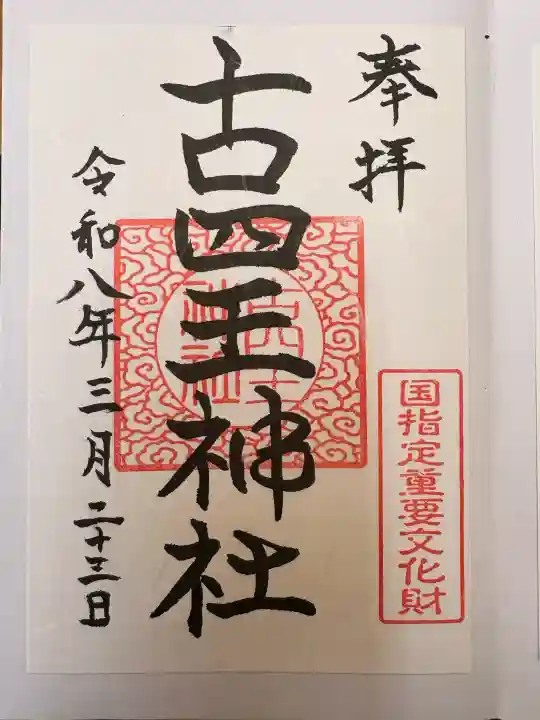 奉拝
国指定重要文化財
古四王神社
古四王
神社
令和八年三月二十三日